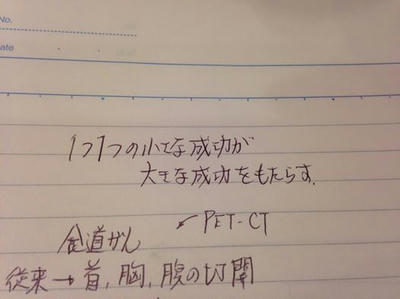 No.
ate
1つ1つの小さな成功が
大きな成功をもたらす.
← PET-CT
食道がん
従来→首,胸,腹の切開